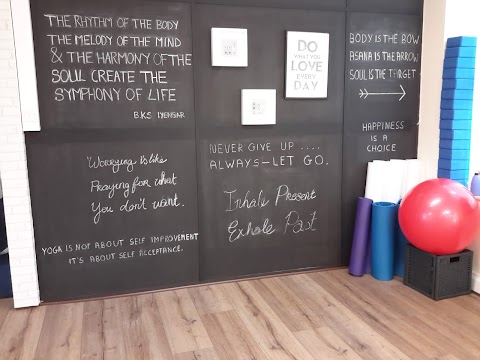 THE RHYTHM OF THE BODY
THE MELODY OF THE MIND
& THE HARMONY OF THE
SOUL CREATE THE
SYMPHONY OF LIFE
B.K.S. IYENGAR
Worrying is like
Praying for what
You don't want.
YOGA IS NOT ABOUT SELF IMPROVEMENT
IT'S ABOUT SELF ACCEPTANCE.
DO
WHAT YOU
LOVE
EVERY
DAY
NEVER GIVE UP ....
ALWAYS-LET GO.
Inhale Present
Exhale Past
BODY IS THE BOW
ASANA IS THE ARROW
SOUL IS THE TARGET
HAPPINESS
IS A
CHOICE